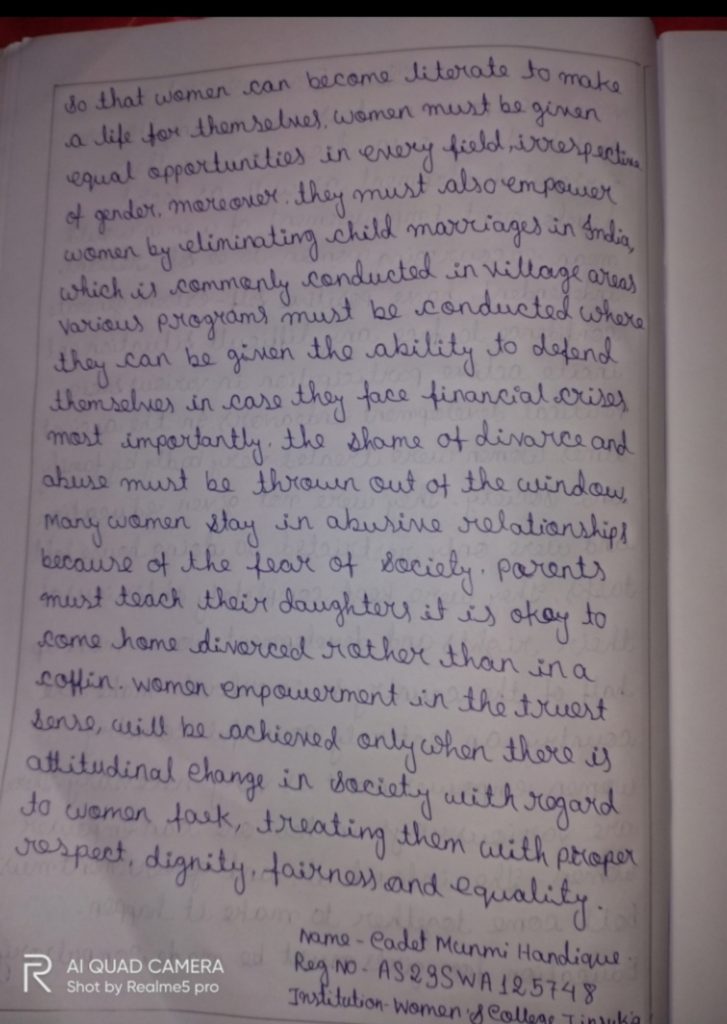 so that women can become literate to make
a life for themselves, women must be given
equal opportunities in every field, irrespective
of gender. moreover, they must also empower
women by eliminating child marriages in India,
which is commonly conducted in village areas
various programs must be conducted where
they can be given the ability to defend
themselves in case they face financial crises,
most importantly. the shame of divorce and
abuse must be thrown out of the window,
Many women stay in abusive relationships
because of the fear of society. parents
must teach their daughters it is okay to
come home divorced rather than in a
coffin. women empowerment in the truest
sense, will be achieved only when there is
attitudinal change in society with regard
to women folk, treating them with proper
respect, dignity, fairness and equality.
Name - Cadet Munmi Handique.
Reg.No - AS23SWA125748
Institution - Women's College Tinsukia
AI QUAD CAMERA
Shot by Realme5 pro